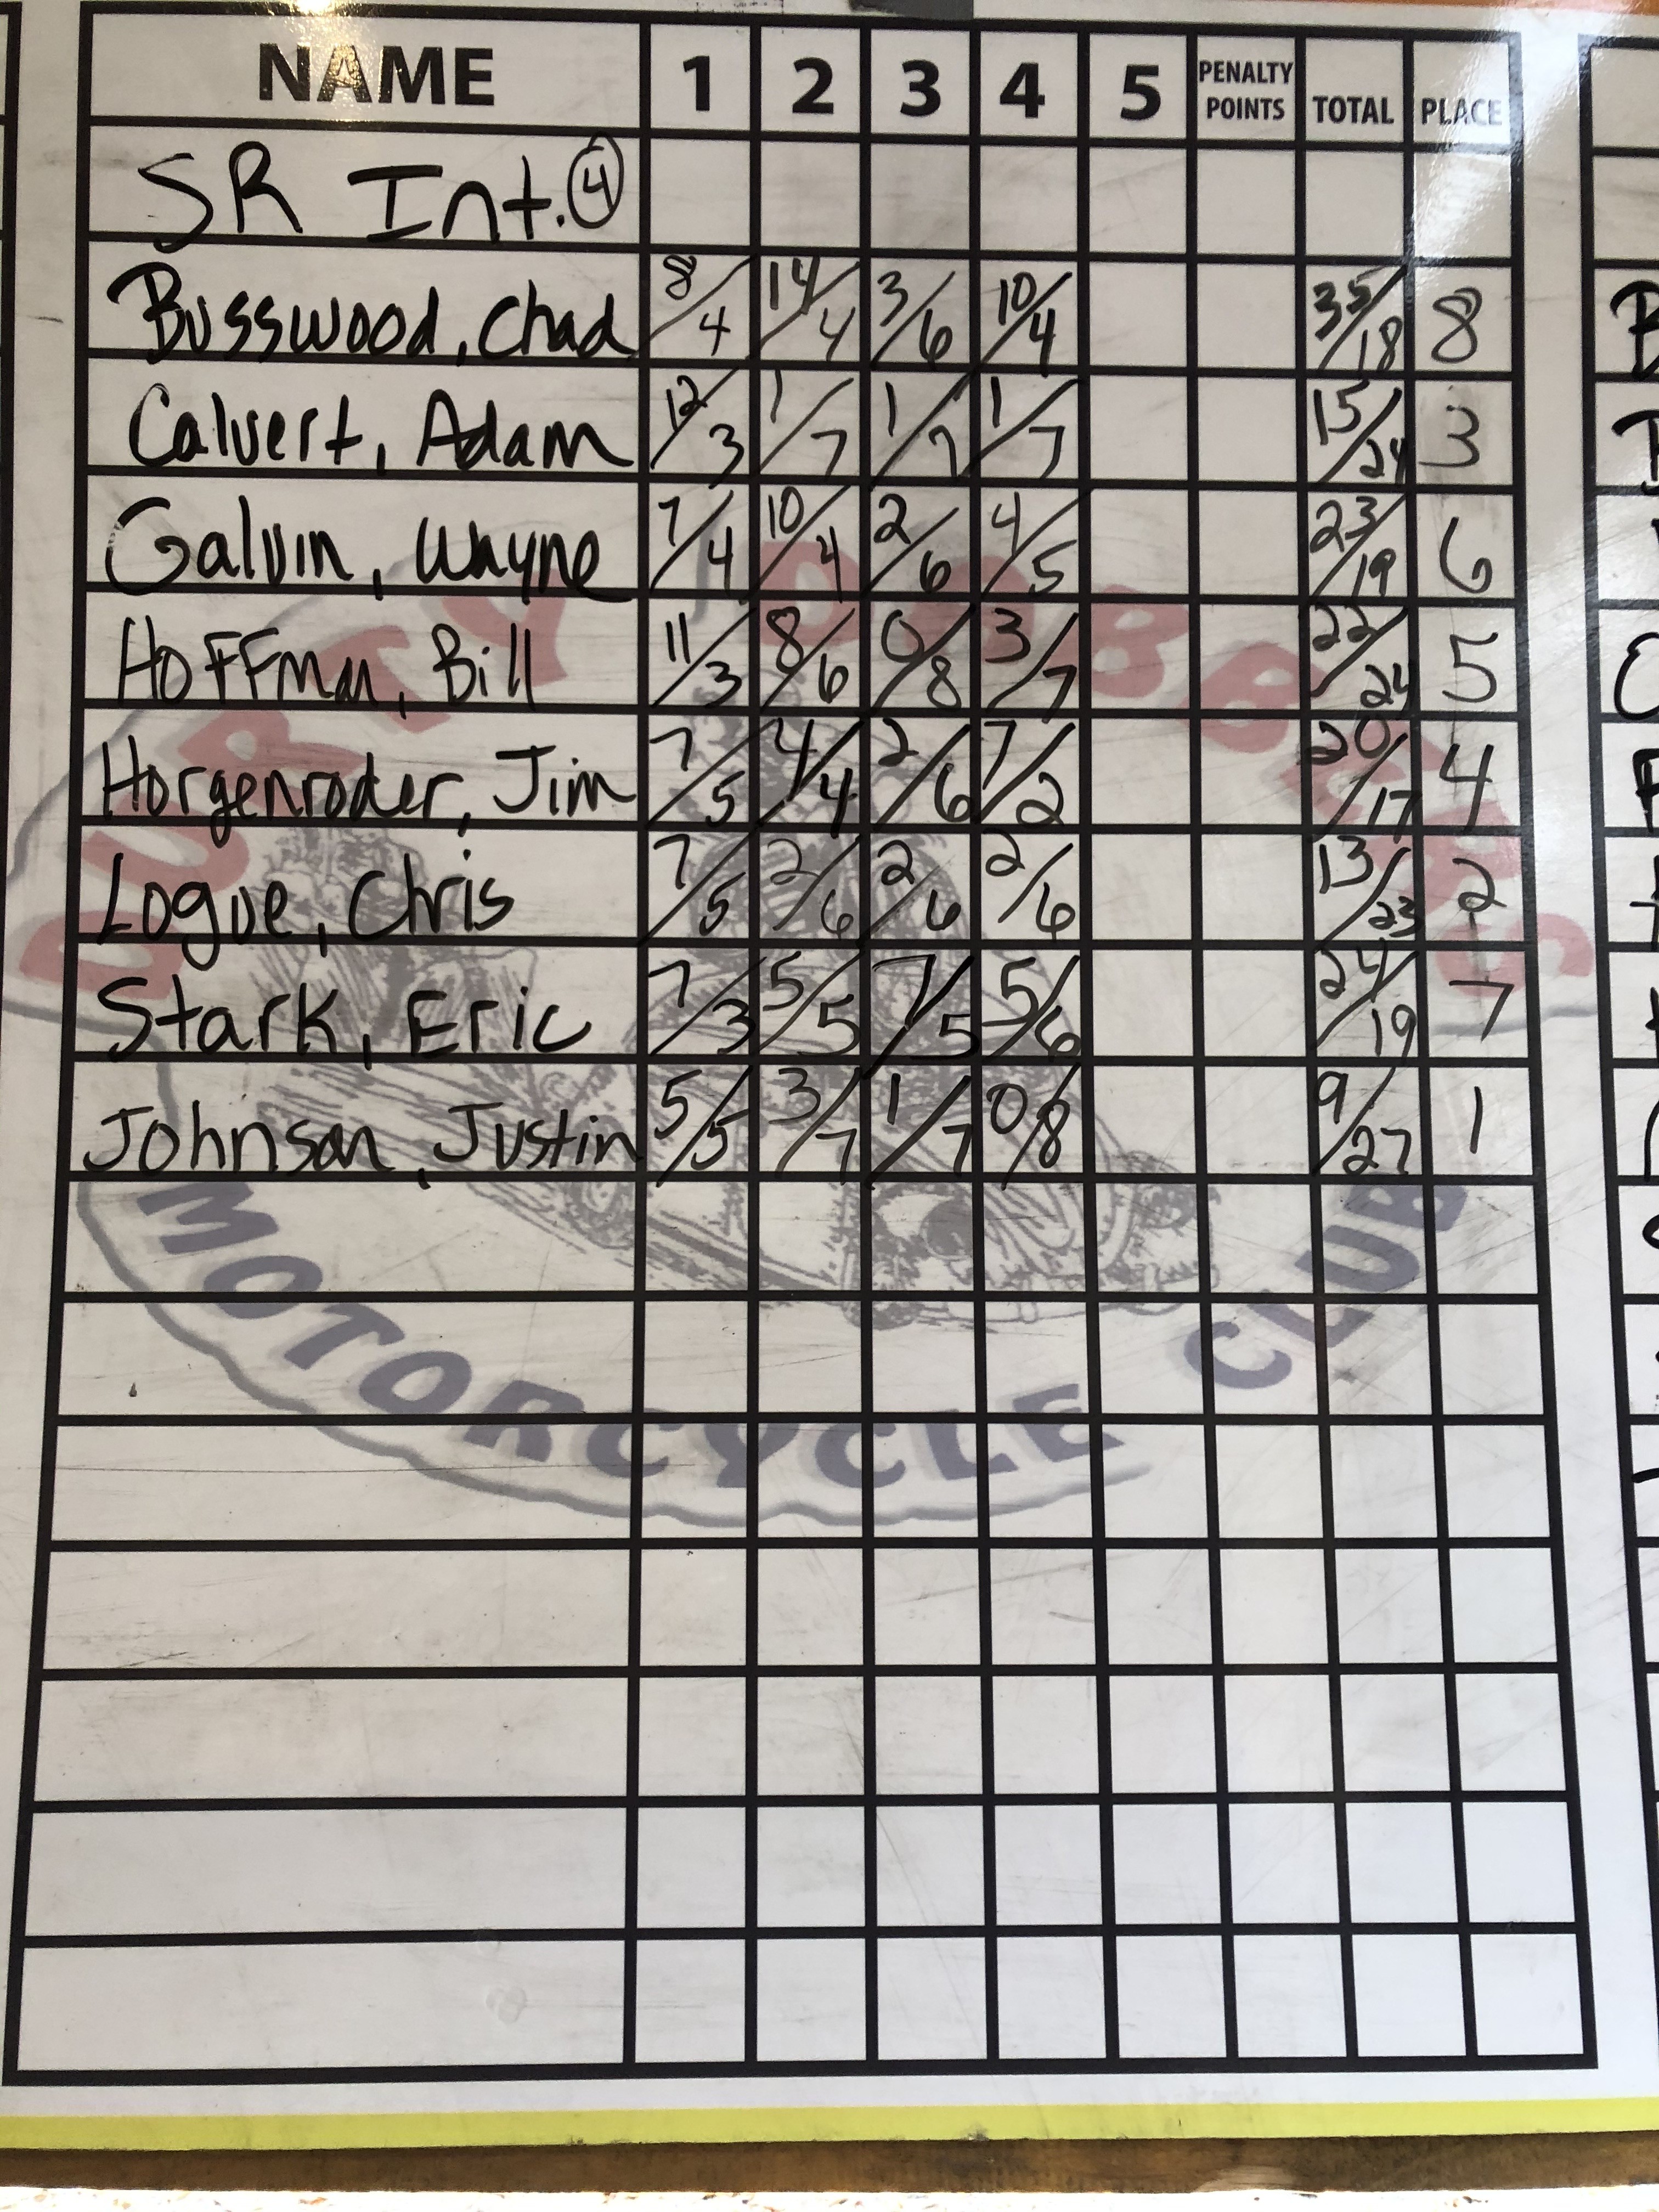 NAME 1 2 3 4 5 PENALTY POINTS TOTAL PLACE
SR Int. 4
Busswood, Chad 8/4 14/4 3/6 10/4 35/18 8
Calvert, Adam 12/3 1/7 1/7 1/7 15/24 3
Galvin, Wayne 7/4 10/4 2/6 4/5 23/19 6
Hoffman, Bill 11/3 8/6 0/8 3/7 22/24 5
Horgenroder, Jim 7/5 4/4 2/6 7/2 20/17 4
Logue, Chris 7/5 2/6 2/6 2/6 13/23 2
Stark, Eric 7/3 5/5 7/5 5/6 24/19 7
Johnson, Justin 5/5 3/7 1/7 0/8 9/27 1
DURTY DABBERS
MOTORCYCLE CLUB